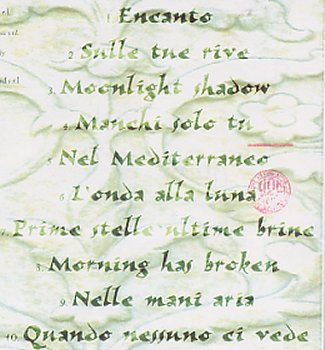 1. Encanto
2. Sulle tue rive
3. Moonlight shadow
4. Manchi solo tu
5. Nel Mediterraneo
6. L'onda alla luna
7. Prime stelle ultime brine
8. Morning has broken
9. Nelle mani aria
10. Quando nessuno ci vede